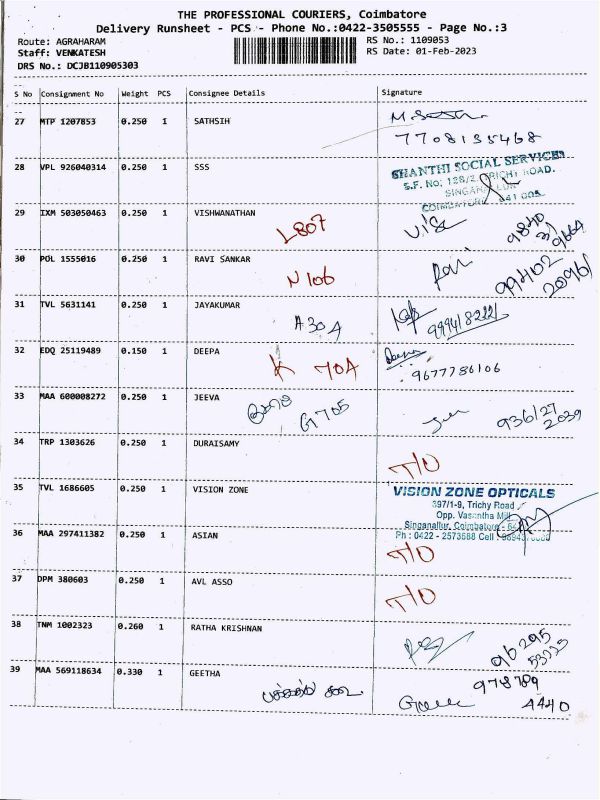 THE PROFESSIONAL COURIERS, Coimbatore
Delivery Runsheet - PCS - Phone No.:0422-3505555 - Page No.:3
Route: AGRAHARAM RS No.: 1109053
Staff: VENKATESH RS Date: 01-Feb-2023
DRS No.: DCJB110905303
S No Consignment No Weight PCS Consignee Details Signature
27 MTP 1207853 0.250 1 SATHSIH
7708135468
28 VPL 926040314 0.250 1 SSS
SHANTHI SOCIAL SERVICES
S.F. No: 128/2, TRICHY ROAD.
29 IXM 503050463 0.250 1 VISHWANATHAN
L807
30 POL 1555016 0.250 1 RAVI SANKAR
N 106 Ravi 99402
20961
31 TVL 5631141 0.250 1 JAYAKUMAR
A 30A
32 EDQ 25119489 0.150 1 DEEPA
K 70A 9677786106
33 MAA 600008272 0.250 1 JEEVA
G 705 936127
2039
34 TRP 1303626 0.250 1 DURAISAMY
T/O
35 TVL 1686605 0.250 1 VISION ZONE
VISION ZONE OPTICALS
397/1-9, Trichy Road
Opp. Vasantha Mill
Singanallur, Coimbatore -
Ph : 0422 - 2573588 Cell :
36 MAA 297411382 0.250 1 ASIAN
T/O
37 DPM 380603 0.250 1 AVL ASSO
T/O
38 TNM 1002323 0.260 1 RATHA KRISHNAN
96295
39 MAA 569118634 0.330 1 GEETHA
978789
4440